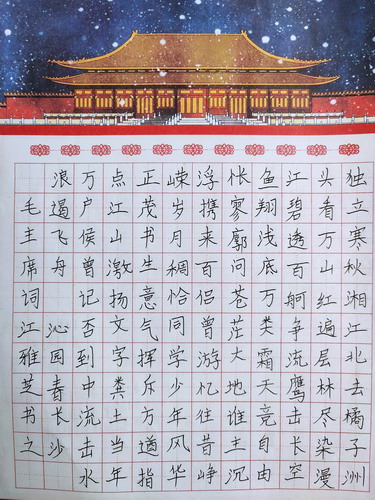 独立寒秋湘江北去橘子洲
头看万山红遍层林尽染漫
江碧透百舸争流鹰击长空
鱼翔浅底万类霜天竞自由
怅寥廓问苍茫大地谁主沉
浮携来百侣曾游忆往昔峥
嵘岁月稠恰同学少年风华
正茂书生意气挥斥方遒指
点江山激扬文字粪土当年
万户侯曾记否到中流击水
浪遏飞舟 沁园春长沙
毛主席词江雅芝书之